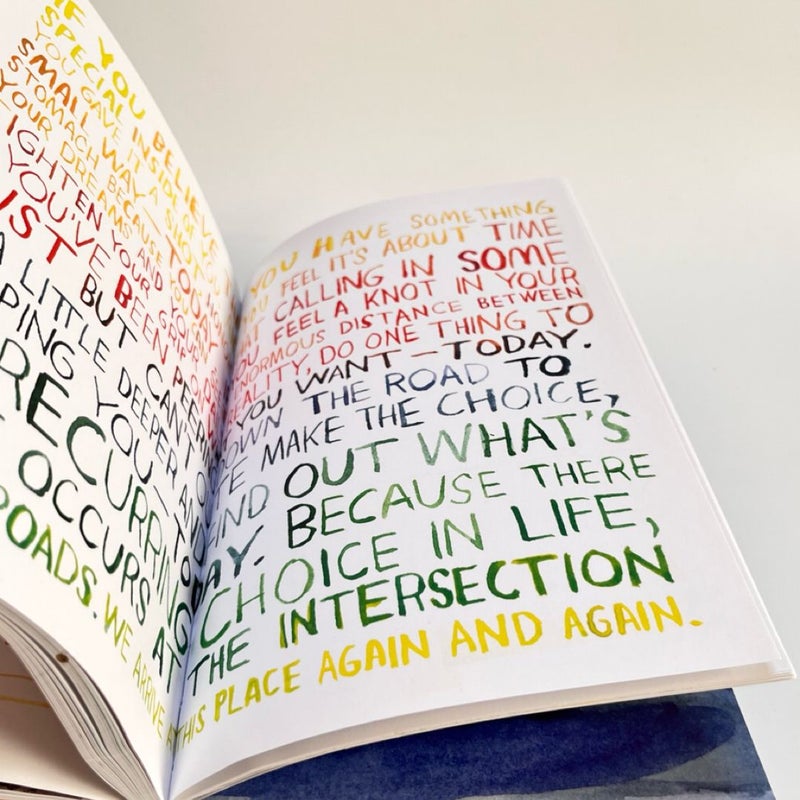 IF YOU BELIEVE YOU HAVE SOMETHING
SPECIAL INSIDE OF FEEL IT'S ABOUT TIME
YOU GAVE IT A SHOT CALLING IN SOME
SMALL WAY — TODAY YOU FEEL A KNOT IN YOUR
STOMACH BECAUSE YOU CAN DISTANCE BETWEEN
YOUR DREAMS AND YOUR REALITY, DO ONE THING TO
IGHTEN YOUR GRIP YOU WANT — TODAY.
YOU'VE BEEN PEER OWN THE ROAD TO
UST BUT CAN'T MAKE THE CHOICE,
A LITTLE DEEPER AND FIND OUT WHAT'S
PING YOU — TODAY. BECAUSE THERE
RECURRING CHOICE IN LIFE,
OCCURS AT THE INTERSECTION
ROADS. WE ARRIVE AT THIS PLACE AGAIN AND AGAIN.